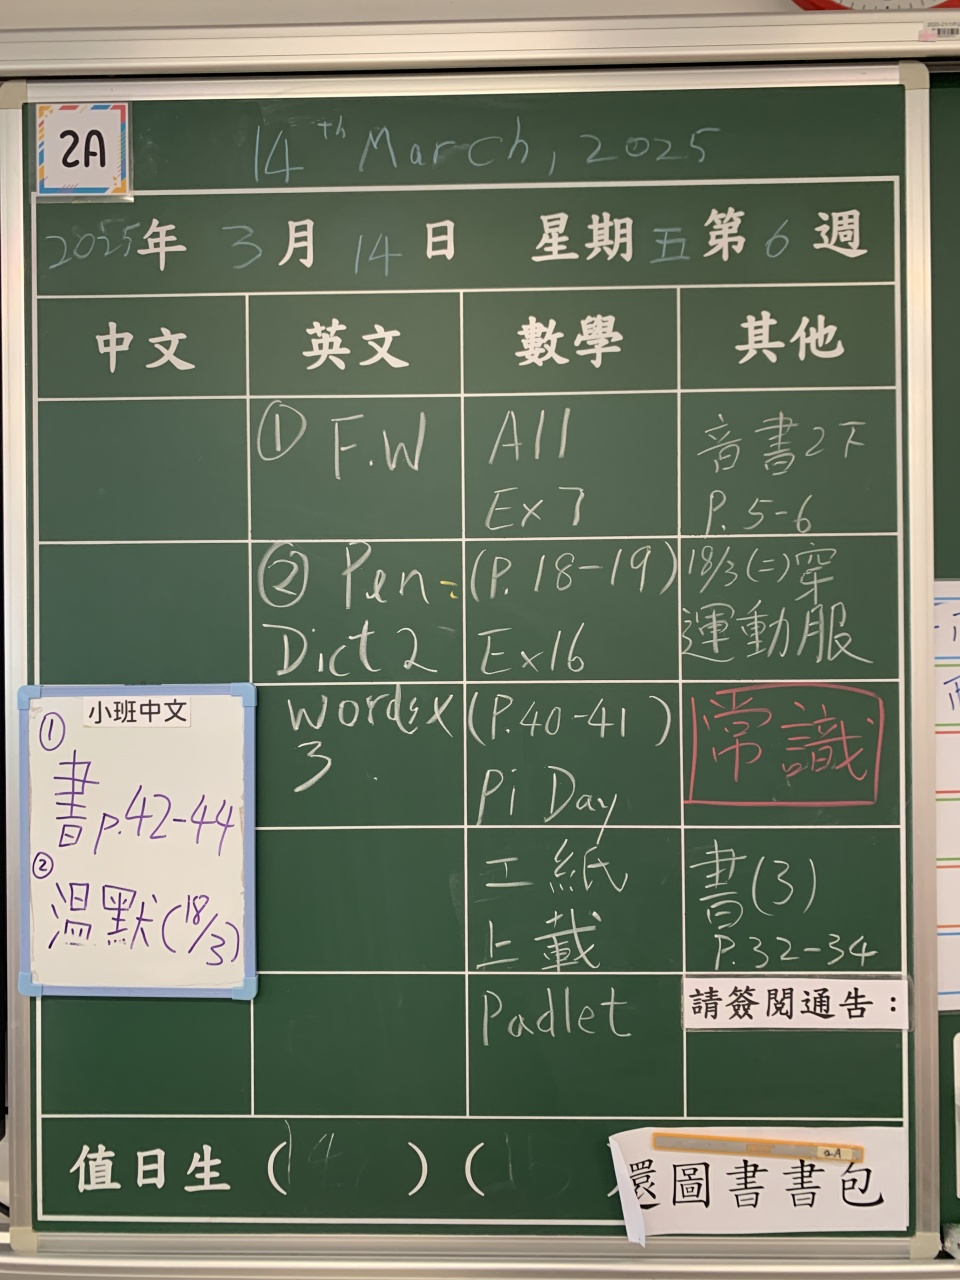 2A
14th March, 2025
2025年 3月 14日 星期五 第6週
中文
小班中文
①
書p.42-44
②
温默(18/3)
英文
① F.W
② Pen=
Dict 2
wordsx
3
數學
All
Ex 7
(P.18-19)
Ex16
(P.40-41)
Pi Day
工紙
上載
Padlet
其他
音書2下
P.5-6
18/3(二)穿
運動服
常識
書(3)
P.32-34
請簽閱通告：
值日生(14)(
還圖書書包
2A